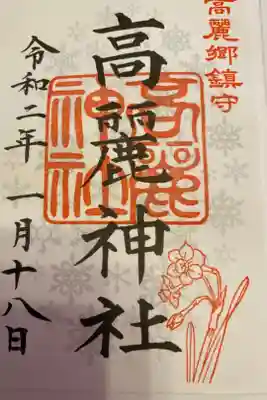 高麗郷鎮守
高麗神社
高麗
神社
令和二年一月十八日